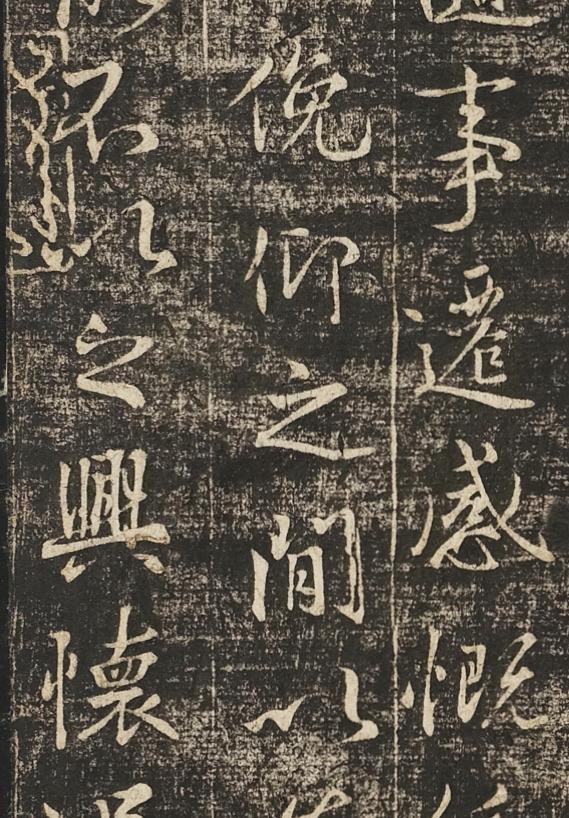 事遷感慨
俛仰之間以
不以之興懷